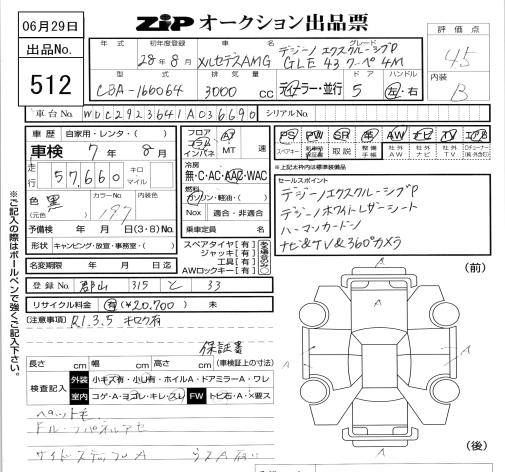 06月29日
ZIP オークション出品票
出品No.
512
年式
初年度登録
28年8月
車名
メルセデスAMG
グレード
デジーノエクスクルーシブP
GLE 43 クーペ 4M
評価点
4.5
内装
B
型式
CBA-166064
排気量
3000 cc
ディーラー・並行
ドア
5
ハンドル
左・右
車台No.
WDC2923641A036690
シリアルNo.
車歴 自家用・レンタ・( )
車検 7年 8月
走行 57,660 キロ マイル
色 黒
(元色)
カラーNo.
197
内装色
予備検 年 月 日(3・8)No.
形状 キャンピング・放宣・事務室・( )
名変期限 年 月 日迄
フロア
コラム
インパネ
AT
MT
速
冷房
無・C・AC・AAC・WAC
燃料
ガソリン・軽油・( )
Nox 適合・非適合
乗車定員 名
スペアタイヤ[有]
ジャッキ[有]
工具[有]
AWロックキー[有]
PS PW SR 革 AW ナビ TV エアB
スペアキー
取説
整備手帳
社外AW
社外ナビ
社外TV
※上記太枠内は標準装備品
セールスポイント
デジーノエクスクルーシブP
デジーノホワイトレザーシート
ハーマンカードン
ナビ&TV&360°カメラ
登録No. 郡山 315 と 33
リサイクル料金 有(¥20,700) 未
(注意事項) R1.3.5 キロク有
保証書
長さ cm 幅 cm 高さ cm (車検証上の寸法)
検査記入
外装 小キズ有・小U有・ホイルA・ドアミラーA・ワレ
室内 コゲ・A・ヨゴレ・キレ・スレ FW トビ石・A・X要ス
(前)
A
A
A
A
(後)
※ご記入の際はボールペンで強くご記入下さい。